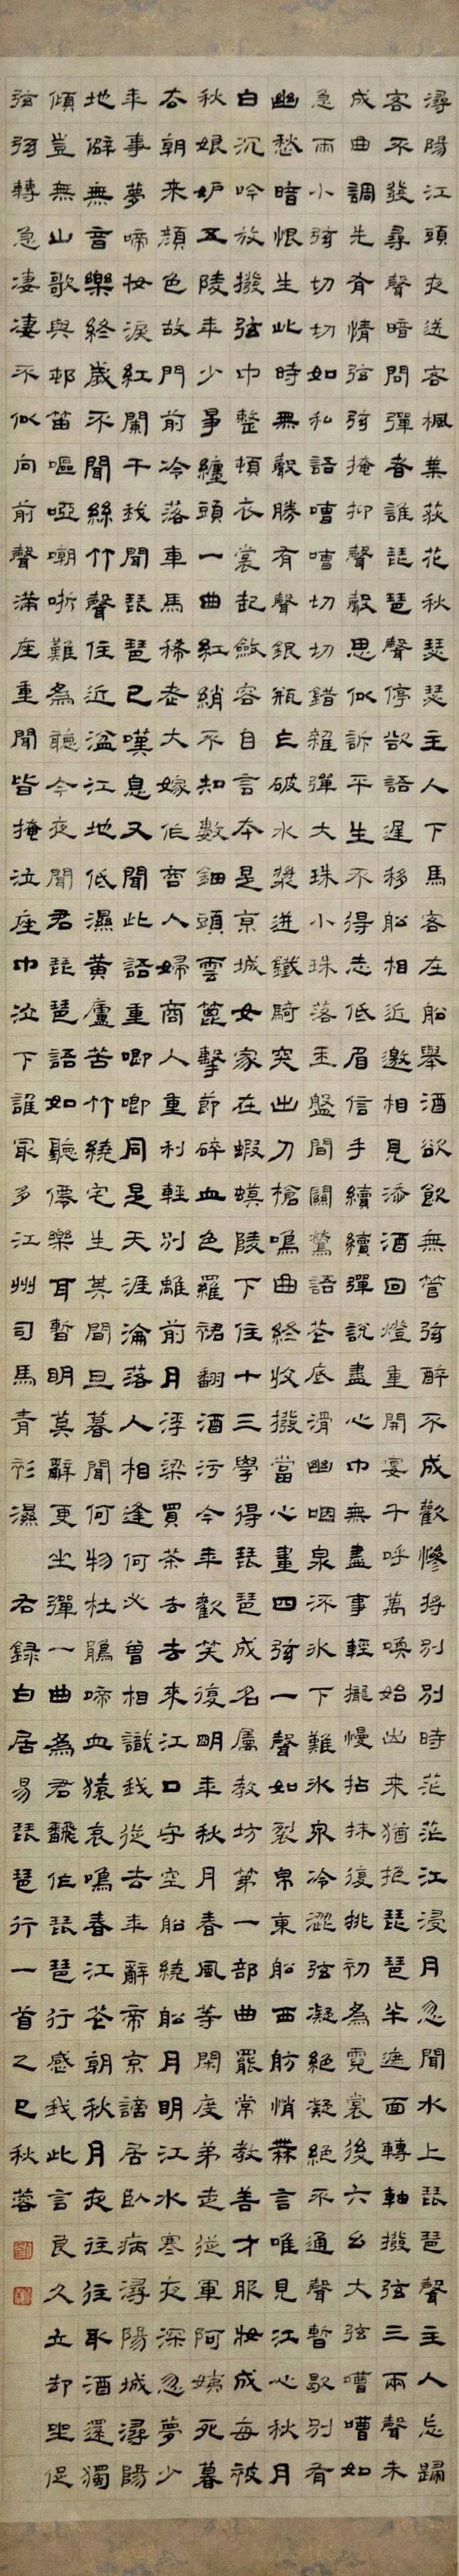 潯陽江頭夜送客楓葉荻花秋瑟瑟主人下馬客在船舉酒欲飲無管弦醉不成歡慘將別別時茫茫江浸月忽聞水上琵琶聲主人忘歸
客不發尋聲暗問彈者誰琵琶聲停欲語遲移船相近邀相見添酒回燈重開宴千呼萬喚始出來猶抱琵琶半遮面轉軸撥弦三兩聲未
成曲調先有情弦弦掩抑聲聲思似訴平生不得志低眉信手續續彈說盡心中無盡事輕攏慢拈抹復挑初為霓裳後六幺大弦嘈嘈如
急雨小弦切切如私語嘈嘈切切錯雜彈大珠小珠落玉盤間關鶯語花底滑幽咽泉流氷下難氷泉冷澀弦凝絕凝絕不通聲暫歇別有
幽愁暗恨生此時無聲勝有聲銀瓶乍破水漿迸鐵騎突出刀槍鳴曲終收撥當心畫四弦一聲如裂帛東船西舫悄無言唯見江心秋月
白沉吟放撥弦中整頓衣裳起斂容自言本是京城女家在蝦蟆陵下住十三學得琵琶成名屬教坊第一部曲罷常教善才服妝成每被
秋娘妒五陵年少爭纏頭一曲紅綃不知數鈿頭雲篦擊節碎血色羅裙翻酒污今年歡笑復明年秋月春風等閑度弟走從軍阿姨死暮
去朝來顏色故門前冷落車馬稀老大嫁作商人婦商人重利輕別離前月浮梁買茶去去來江口守空船繞船月明江水寒夜深忽夢少
年事夢啼妝淚紅闌干我聞琵琶已嘆息又聞此語重唧唧同是天涯淪落人相逢何必曾相識我從去年辭帝京謫居臥病潯陽城潯陽
地僻無音樂終歲不聞絲竹聲住近湓江地低濕黃廬苦竹繞宅生其間旦暮聞何物杜鵑啼血猿哀鳴春江花朝秋月夜往往取酒還獨
傾豈無山歌與邨笛嘔啞嘲哳難為聽今夜聞君琵琶語如聽僊樂耳暫明莫辭更坐彈一曲為君翻作琵琶行感我此言良久立却坐促
弦弦轉急凄凄不似向前聲滿座重聞皆掩泣座中泣下誰冣多江州司馬青衫濕 右錄白居易琵琶行一首乙巳秋蓉